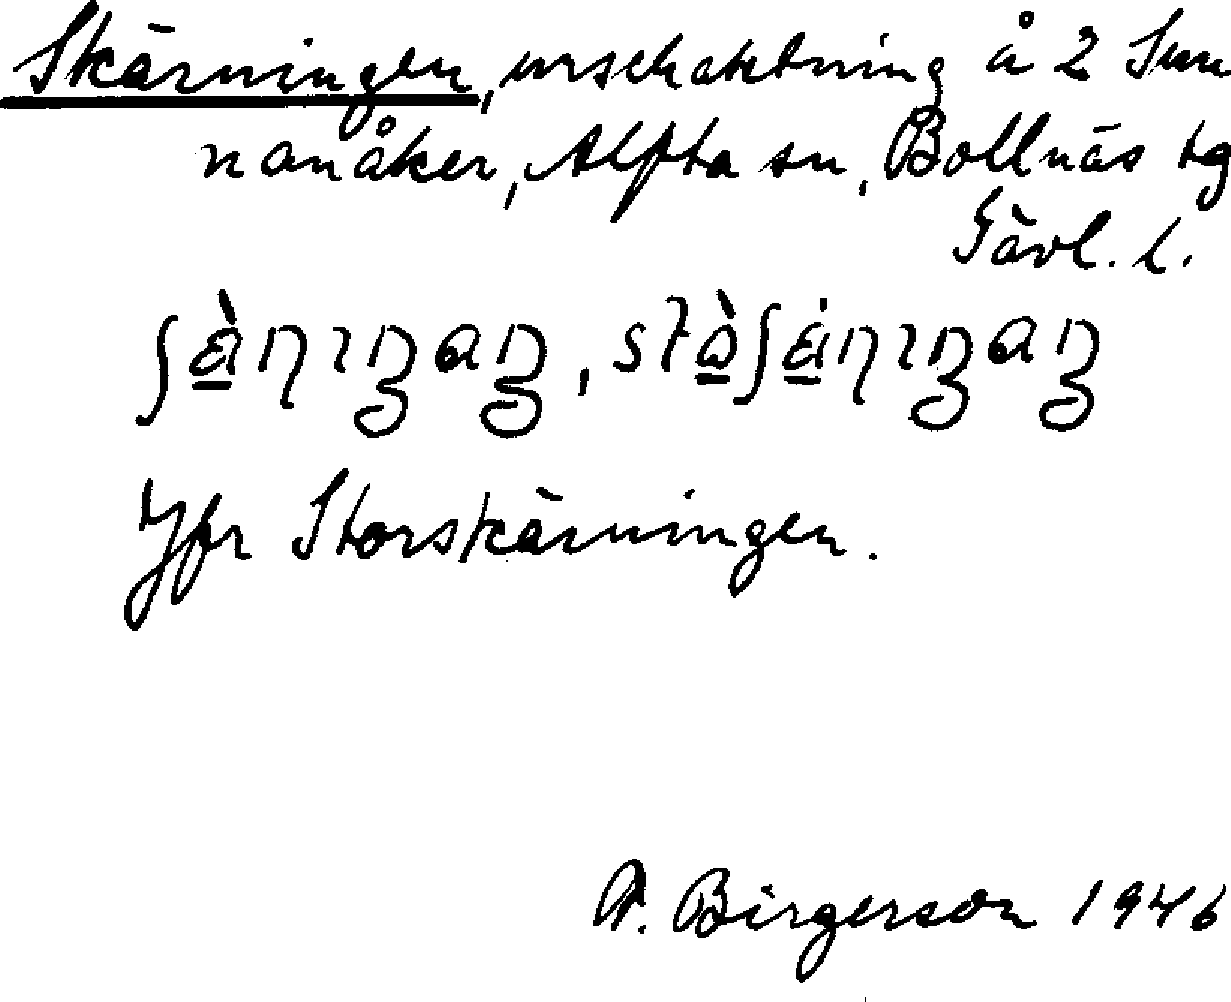 Skärningen, urschaktning å 2 Sun
nanåker, Alfta sn, Bollnäs tg
Gävl. l.
Jfr Storskärningen.
A. Birgerson 1946